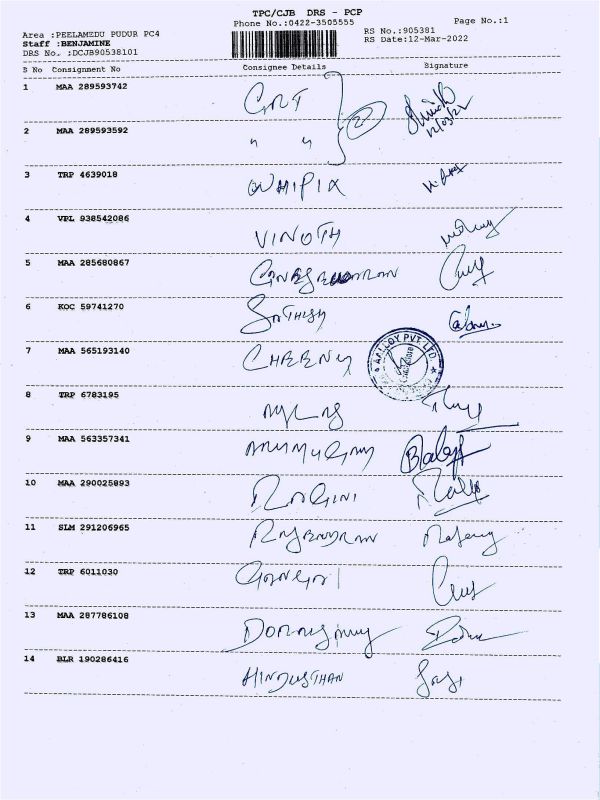 TPC/CJB DRS - PCP
Phone No.:0422-3505555 Page No.:1
Area :PEELAMEDU PUDUR PC4 RS No.:905381
Staff :BENJAMINE RS Date:12-Mar-2022
DRS No. :DCJB90538101
S No Consignment No Consignee Details Signature
1 MAA 289593742 GRT 2
12/03/22
2 MAA 289593592 " "
3 TRP 4639018 WHIPIX
4 VPL 938542086 VINOTH
5 MAA 285680867
6 KOC 59741270 SATHISH
7 MAA 565193140 ALLOY PVT LTD.
8 TRP 6783195
9 MAA 563357341 ARUMUGAM
10 MAA 290025893 RAGINI
11 SLM 291206965 RAJENDRAN
12 TRP 6011030
13 MAA 287786108
14 BLR 190286416 HINDUSTHAN